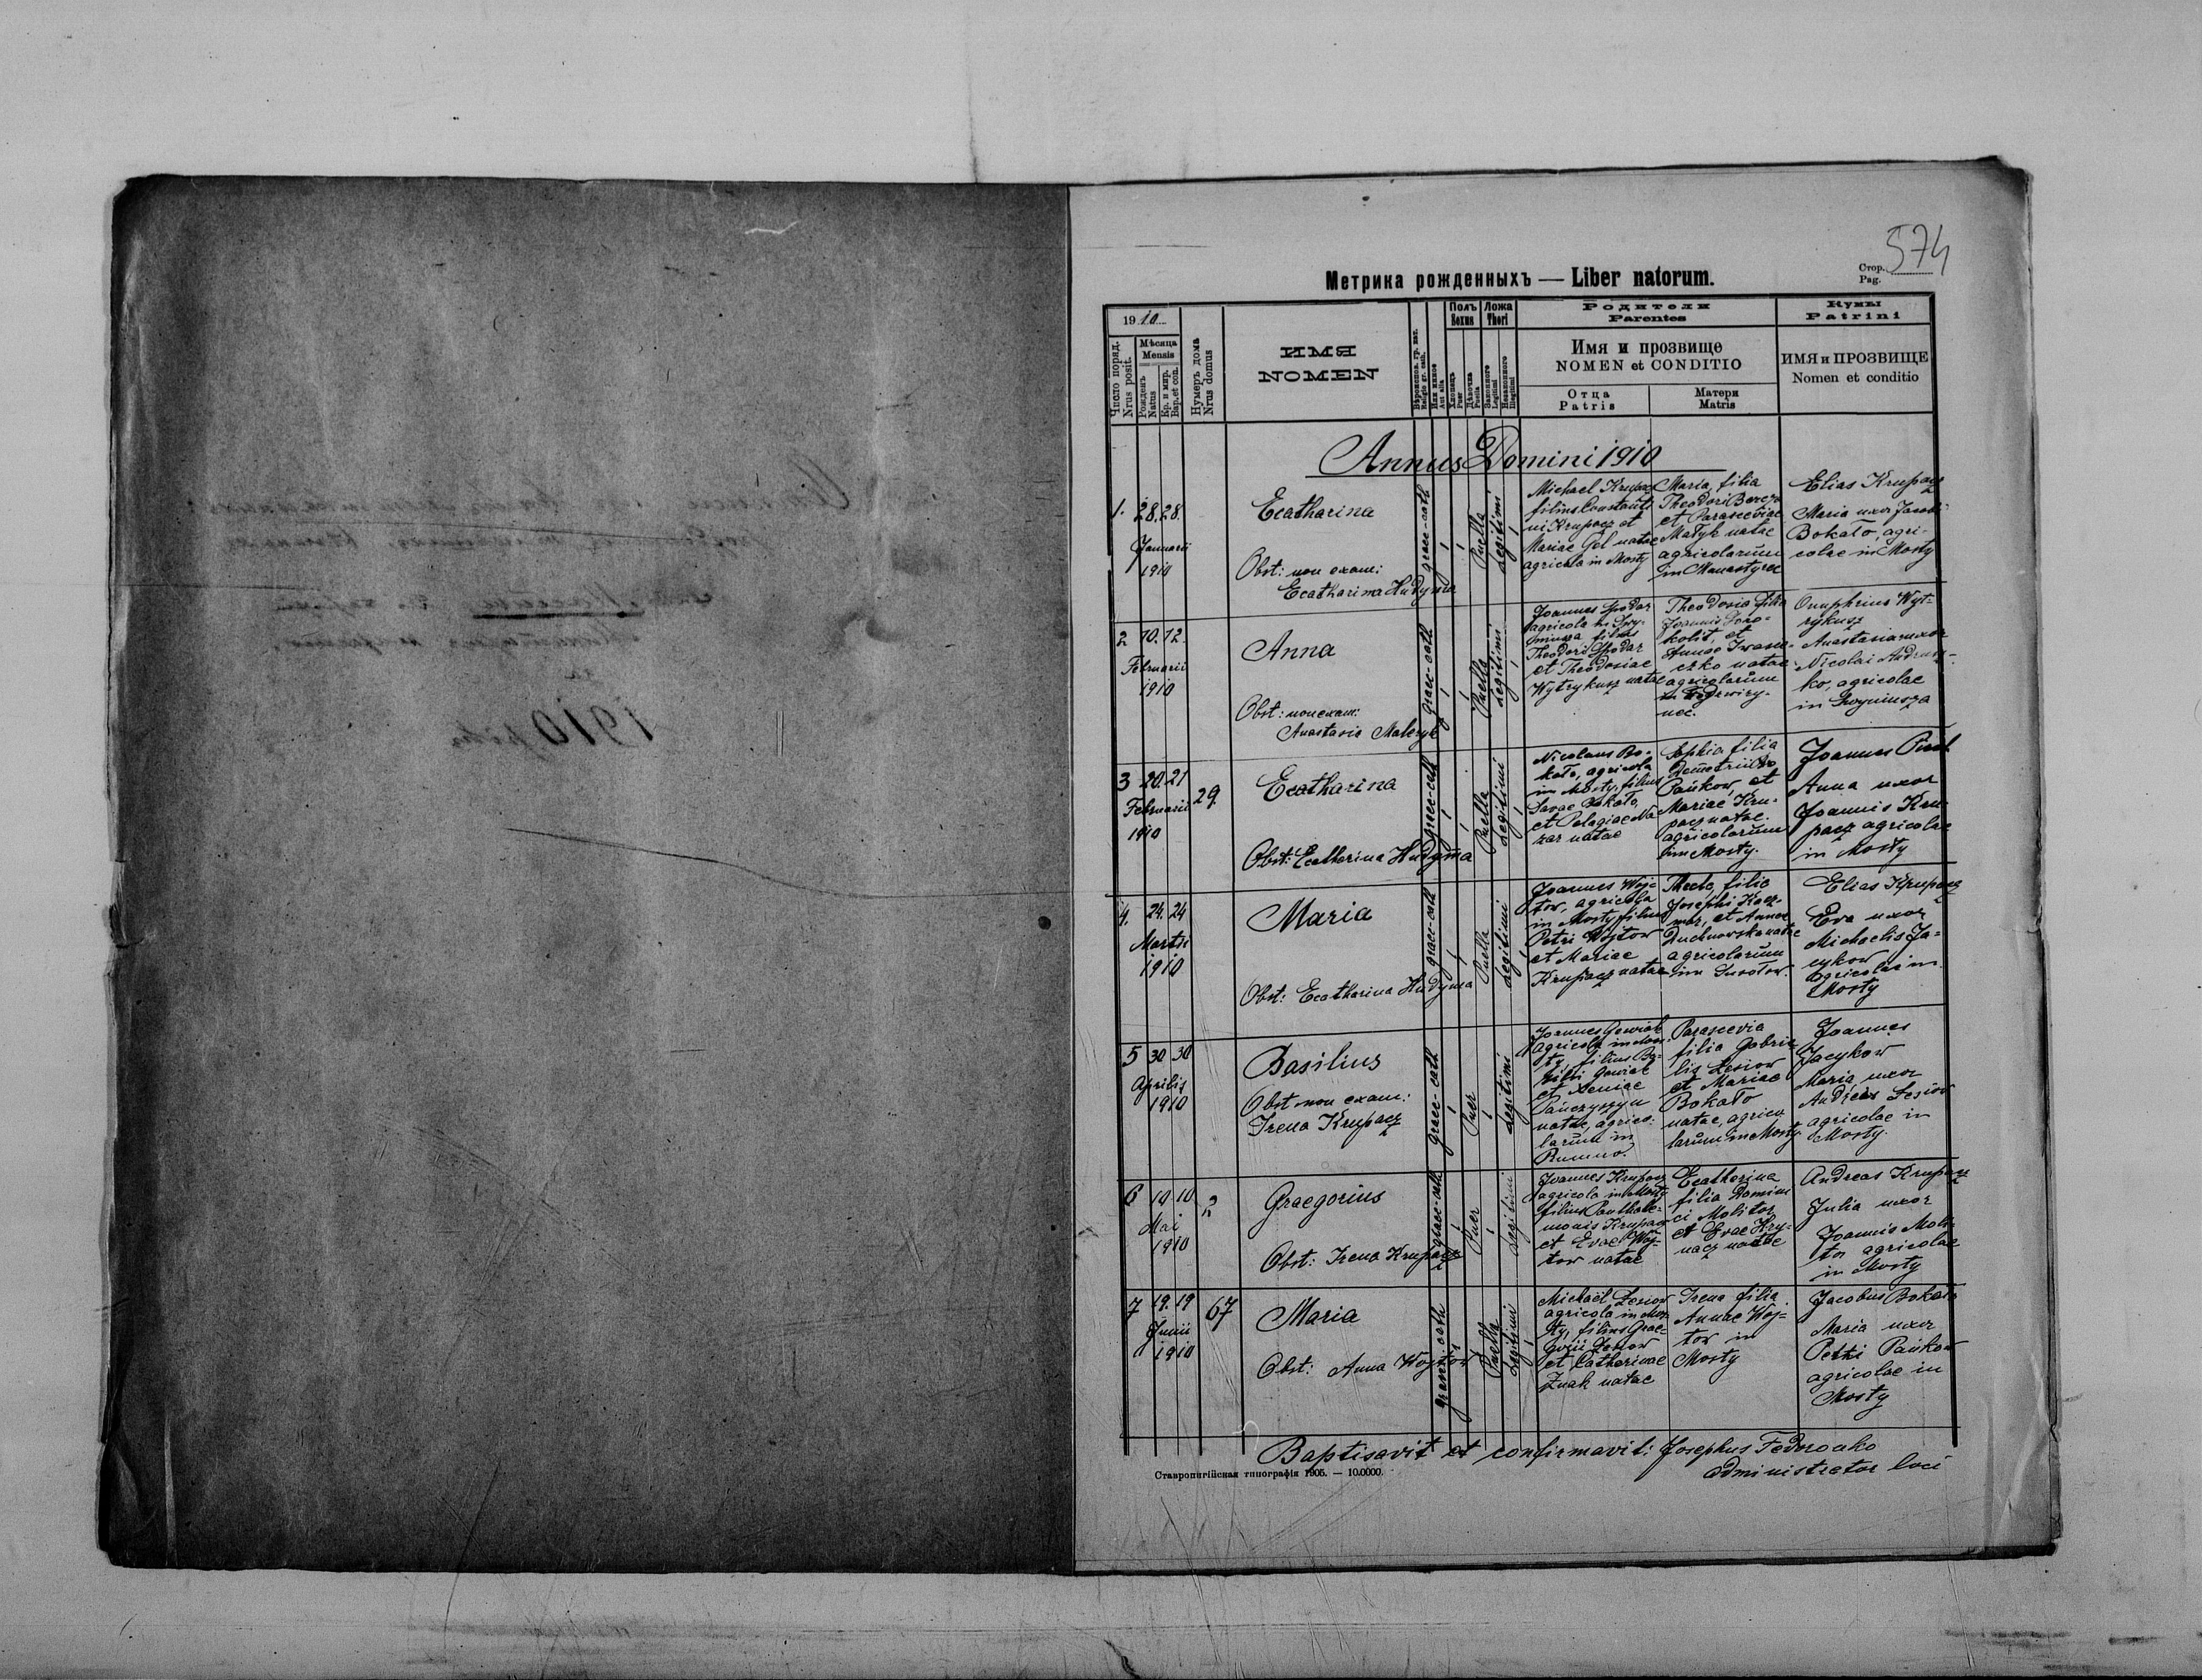 574
Метрика рожденныхъ — Liber natorum.
Стор.
Pag.
1910
Число поряд.
Nrus posit.
Мѣсяца
Mensis
Рожденъ
Natus
Кр. и мир.
Bap. et con.
Нумеръ дома
Nrus domus
ИМЯ
NOMEN
Полъ
Sexus
Ложа
Thori
Родители
Parentes
Имя и прозвище
NOMEN et CONDITIO
Отца
Patris
Матери
Matris
Кумы
Patrini
ИМЯ и ПРОЗВИЩЕ
Nomen et conditio
Annus Domini 1910
1.
28. 28.
Januarii
1910
Ecatharina
Obst: non exam:
Ecatharina Hudyma
graec-cath
Puella
Legitimi
Michael Krupacz
filius Constanti
ni Krupacz et
Mariae Gel natae
agricola in Mosty
Maria, filia
Theodori Bereza
et Parasceviae
Matyk natae
agricolarum
in Manastyrec
Elias Krupacz
Maria uxor Jacobi
Bokało, agri-
colae in Mosty
2
10. 12.
Februarii
1910
Anna
Obst: non exam:
Anastasia Malczyk
graec-cath
Puella
Legitimi
Joannes Spodar
agricola in
filius
Theodori Spodar
et Theodosiae
Wytrykusz natae
Theodosia filia
Joannis
et
Annae Iwasie-
czko natae
agricolarum
in
nec.
Onuphrius Wyt-
rykusz
Anastasia uxor
Nicolai Andrusz-
ko, agricolae
in
3
20. 21
Februarii
1910
29.
Ecatharina
Obst: Ecatherina Hudyma
graec-cath
Puella
Legitimi
Nicolaus Bo-
kało, agricola
in Mosty, filius
Savae Bokało,
et Pelagiae Na-
zar natae
Sophia filia
Demetrii
Pańkow, et
Mariae Kru-
pacz natae.
agricolarum
in Mosty.
Joannes
Anna uxor
Joannis Kru-
pacz agricolae
in Mosty
4.
24. 24
Martii
1910
Maria
Obst: Ecatharina Hudyma
graec-cath
Puella
Legitimi
Joannes Woj-
tow, agricola
in Mosty, filius
Petri Wojtow
et Mariae
Krupacz natae
Thecla, filia
Josephi Kacz-
mar, et Annae
Duchnowska natae
agricolarum
in
Elias Krupacz
Eva uxor
Michaelis Ja-
cykow
agricolae in
Mosty
5
30. 30
Aprilis
1910
Basilius
Obst non exam:
Irena Krupacz
graec-cath
Puer
Legitimi
Joannes Gewiak
agricola in Mos-
ty, filius Ba-
silii Gewiak
et Xeniae
Pańczyszyn
natae, agrico-
larum in
Rumno.
Parascevia
filia Gabrie
lis Lesiow
et Mariae
Bokało
natae, agrico
larum in Mosty
Joannes
Jacykow
Maria uxor
Andreas Lesiow
agricolae in
Mosty.
6
10 10
Mai
1910
2
Graegorius
Obst: Irena Krupacz
graec-cath
Puer
Legitimi
Joannes Krupacz
agricola in Mosty
filius Panthale-
monis Krupacz
et Evae Woj-
tow natae
Ecatherina
filia Domini
ci Molitor
et Evae Hry-
nacz natae
Andreas Krupacz
Julia uxor
Joannis Moli-
tor agricolae
in Mosty
7
19. 19
Junii
1910
67
Maria
Obst: Anna Wojtow
graec-cath
Puella
Legitimi
Michaël Lesiow
agricola in Mos-
ty, filius Grae-
gorii Lesiow
et Catharinae
Znak natae
Irena filia
Annae Woj-
tow in
Mosty
Jacobus Bokało
Maria uxor
Petri Pańkow
agricolae in
Mosty
Baptisavit et confirmavit: Josephus Fedoronko
administrator loci
Ставропигійская типографія 1905. — 10.0000.